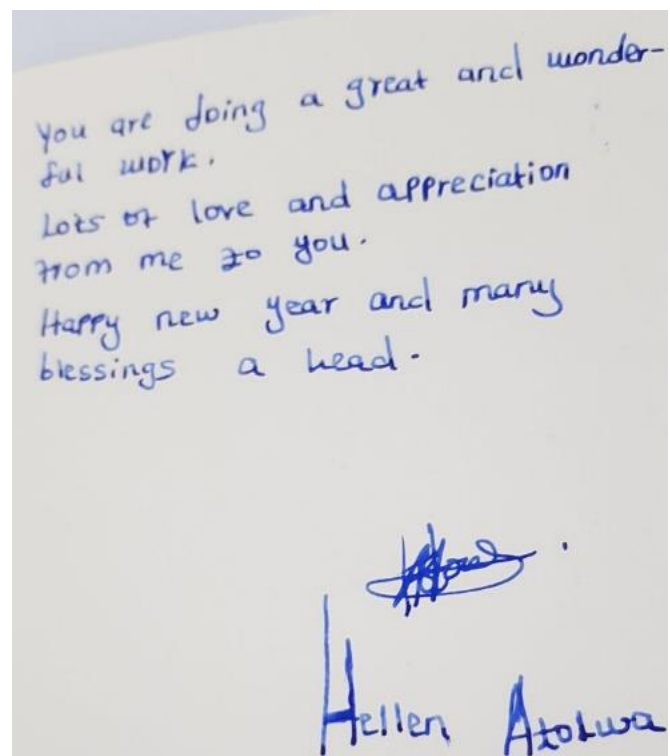 You are doing a great and wonder-
ful work.
Lots of love and appreciation
from me to you.
Happy new year and many
blessings a head.
Hellen Atolwa